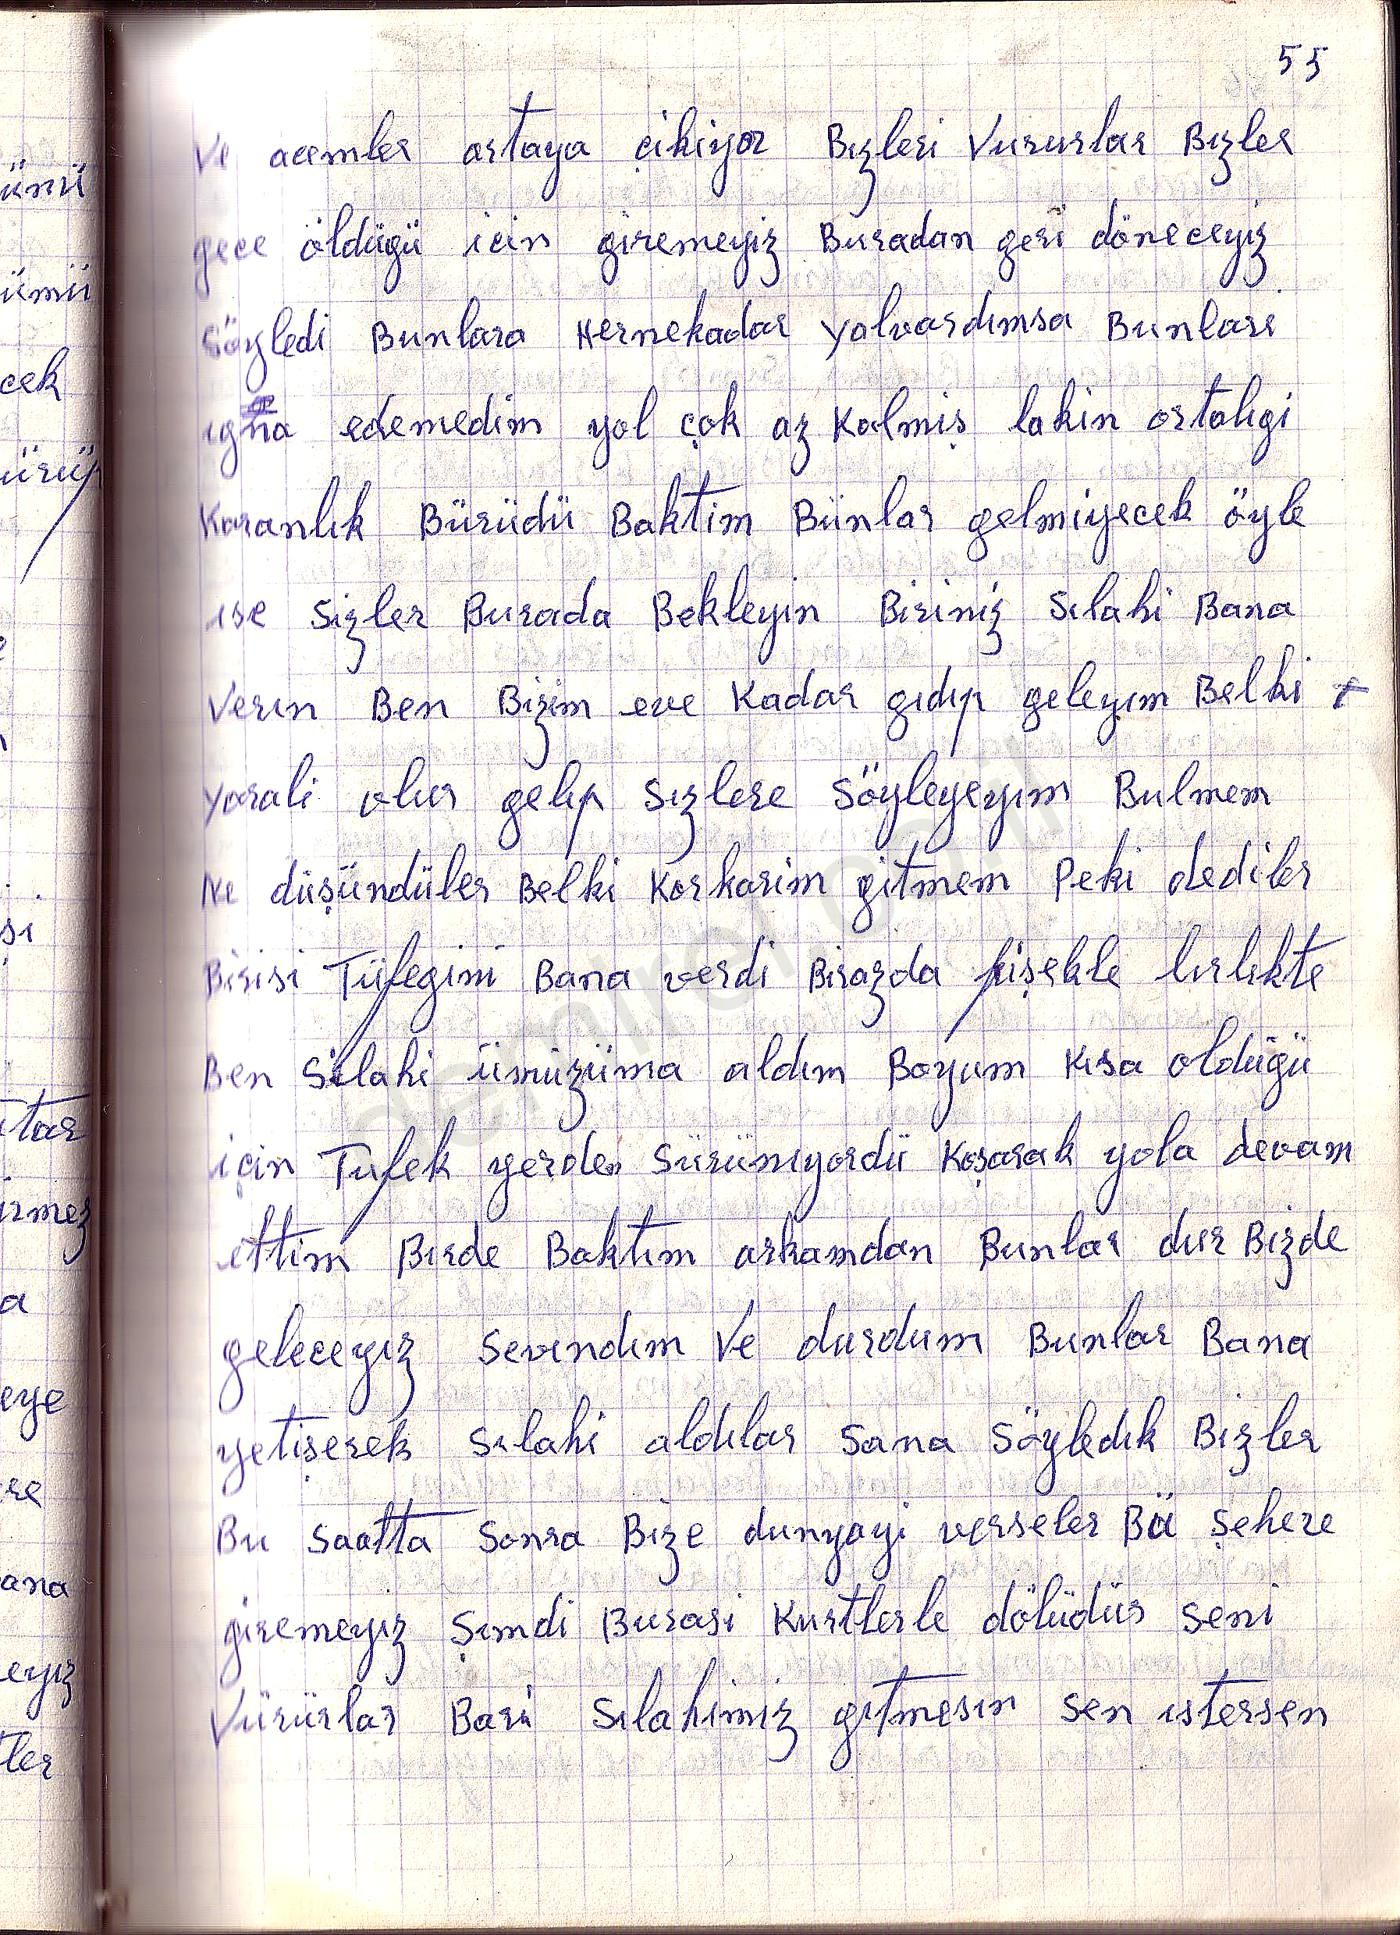 55
Ve acemler ortaya çikiyor Bızleri Vururlar Bızler
gece öldügü icin giremeyiz Buradan geri döneceyiz
Söyledi Bunlara Hernekadar yalvardımsa Bunlari
edemedim yol çok az Kalmiş lakin ortaligi
Karanlık Bürüdü Baktim Bünlar gelmiyecek öyle
ıse Sizler Burada Bekleyin Biriniz Sılahi Bana
Verın Ben Bizim eve Kadar gıdıp geleyım Belki +
yarali olur gelıp sızlere Söyleyeyım Bulmem
Ne düşündüler Belki Korkarim gitmem Peki dediler
Birisi Tüfegini Bana verdi Birazda fişekle bırlıkte
Ben Silahi ümüzüma aldım Boyum Kısa oldügü
için Tüfek yerde Sürünıyordü Koşarak yola devam
ettim Bırde Baktım arkamdan Bunlar dur Bizde
geleceyız Sevındım Ve durdum Bunlar Bana
yetişerek Sılahi aldılar Sana Söyledık Bizler
Bu Saatta Sonra Bize dunyayi verseler Bü Şehere
giremeyız Şımdi Burasi Kurtlerle dölüdür Seni
Vürürlar Bari Sılahimiz gıtmesın Sen ıstersen
ünü
ümü
cek
ürüp
şı
tar
ırmez
a
eye
re
ana
eyız
tler
demirel.co.il